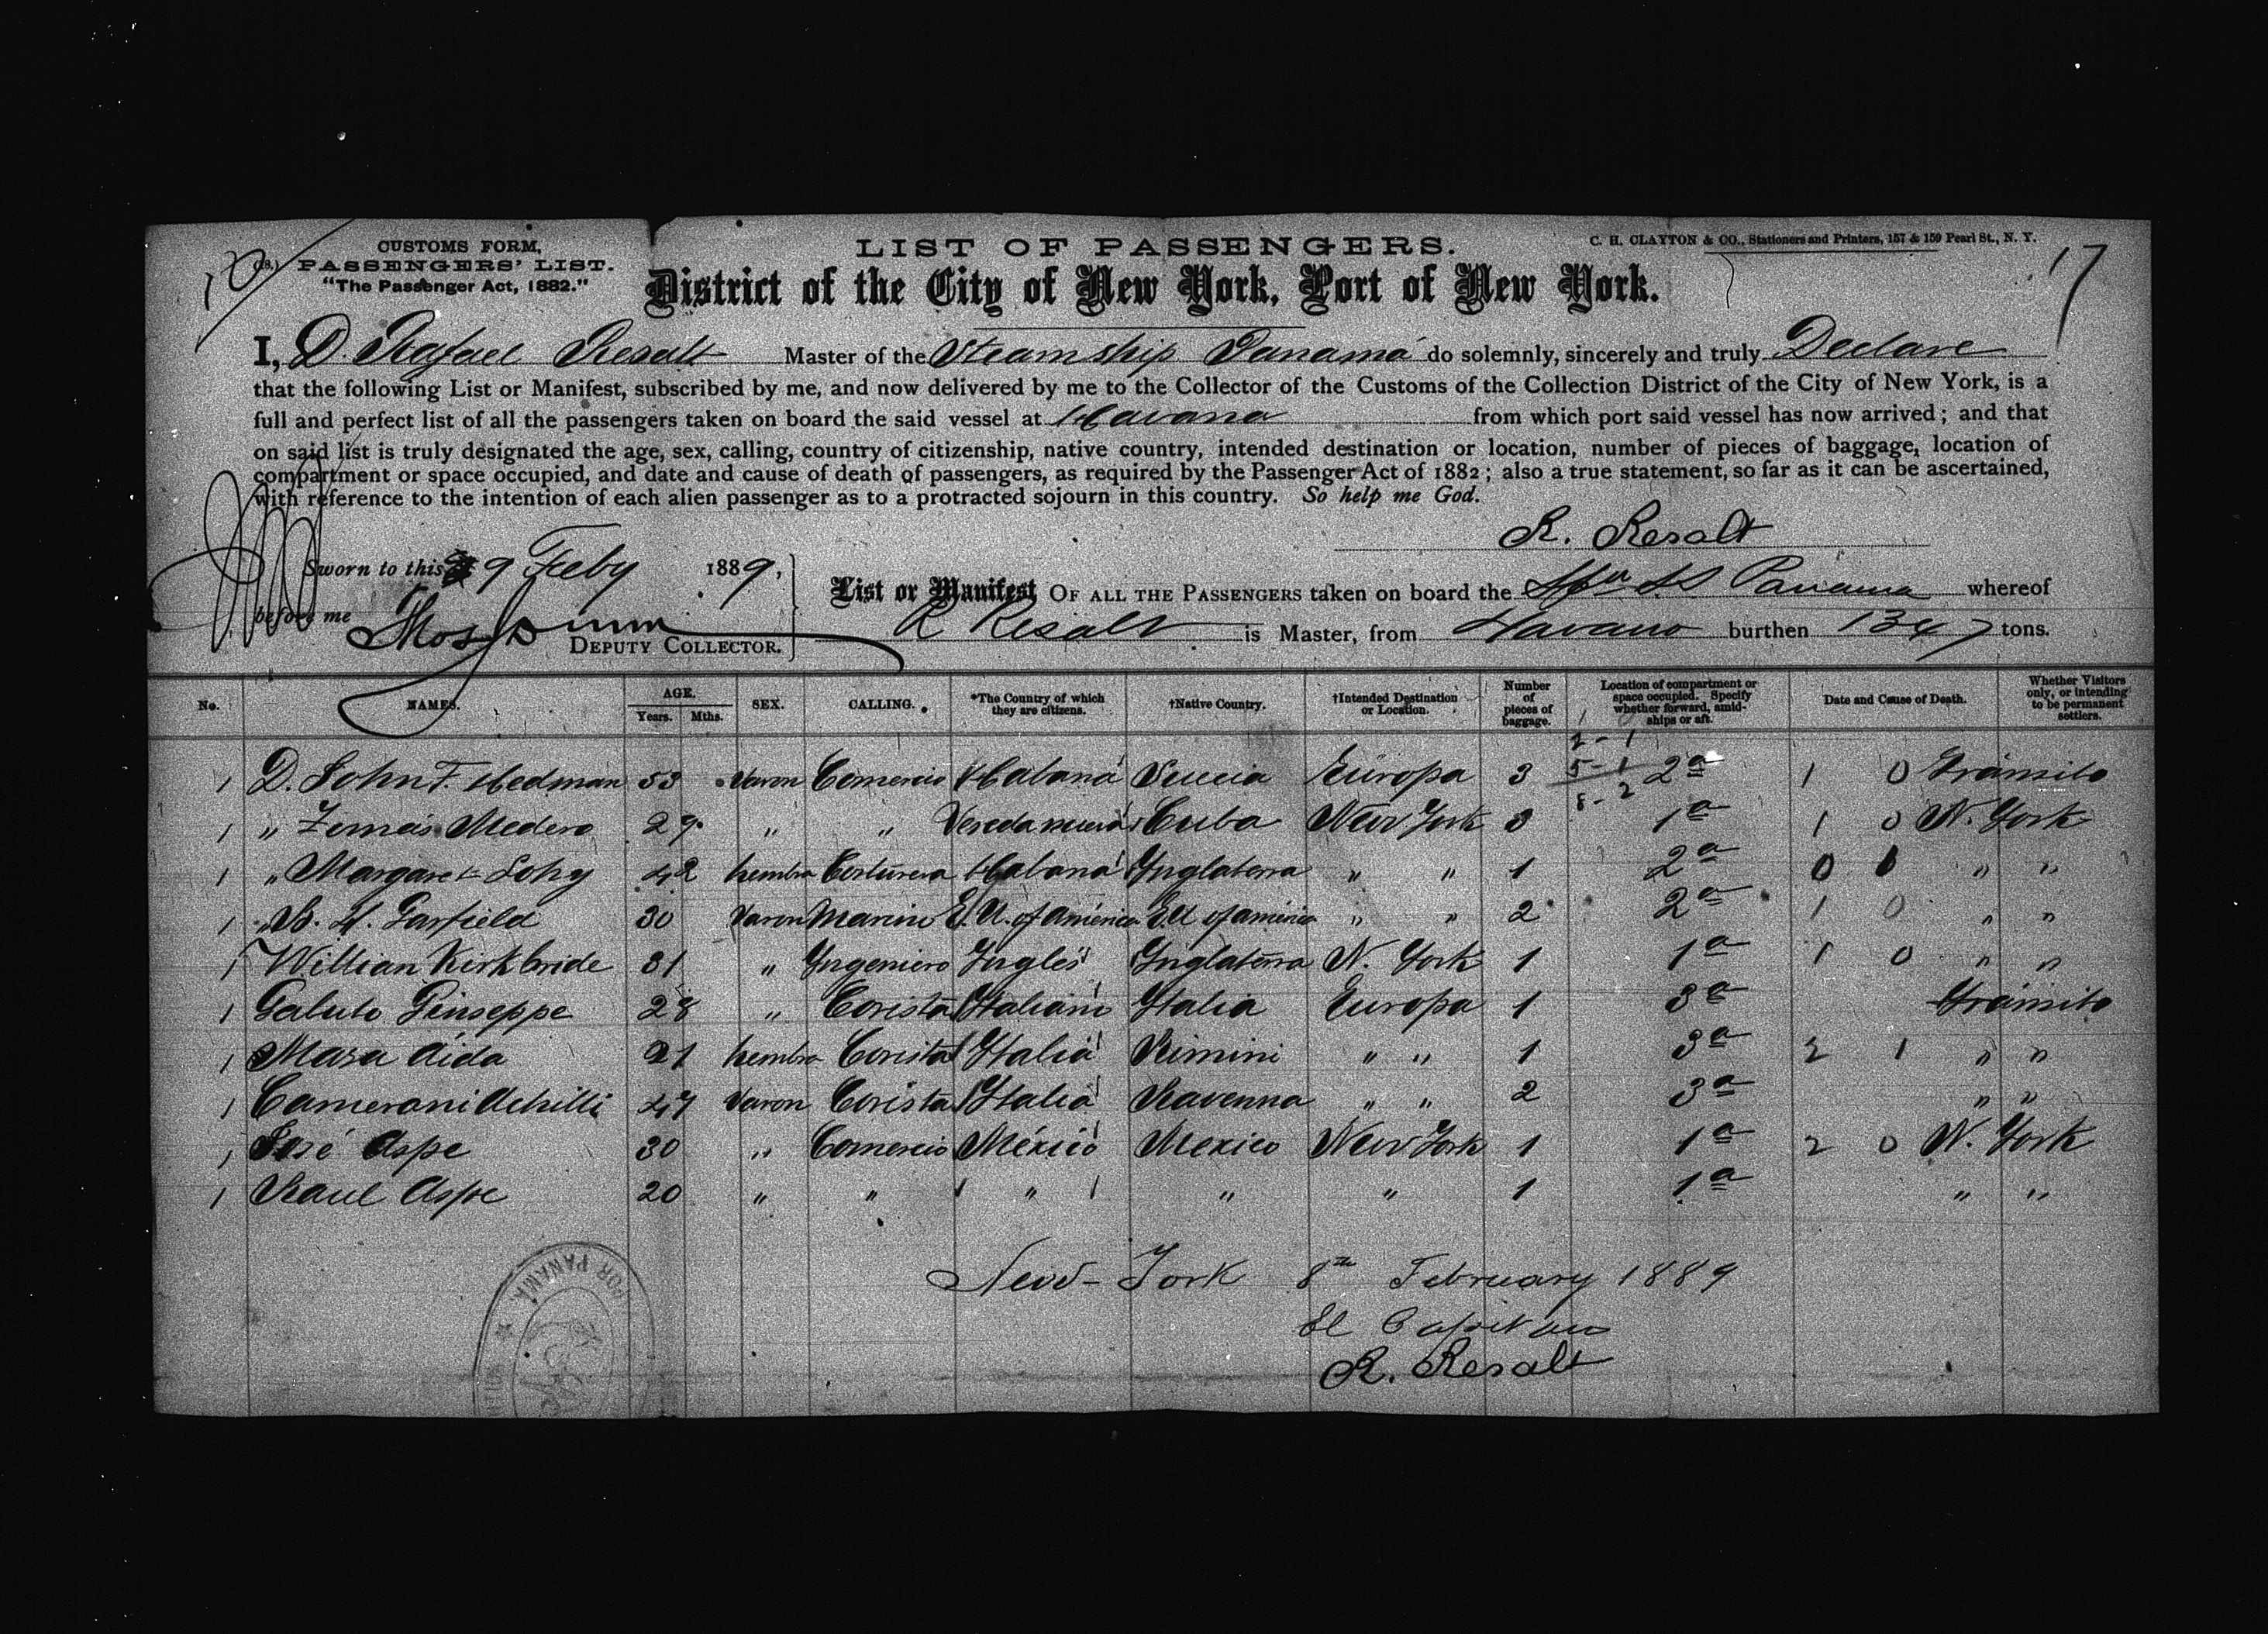 CUSTOMS FORM,
PASSENGERS' LIST.
"The Passenger Act, 1882."
LIST OF PASSENGERS.
C. H. CLAYTON & CO., Stationers and Printers, 157 & 159 Pearl St., N. Y.
17
District of the City of New York, Port of New York.
I, D. Rafael Resalt Master of the Steam ship Panamá do solemnly, sincerely and truly Declare
that the following List or Manifest, subscribed by me, and now delivered by me to the Collector of the Customs of the Collection District of the City of New York, is a
full and perfect list of all the passengers taken on board the said vessel at Havana from which port said vessel has now arrived; and that
on said list is truly designated the age, sex, calling, country of citizenship, native country, intended destination or location, number of pieces of baggage, location of
compartment or space occupied, and date and cause of death of passengers, as required by the Passenger Act of 1882; also a true statement, so far as it can be ascertained,
with reference to the intention of each alien passenger as to a protracted sojourn in this country. So help me God.
R. Resalt
Sworn to this 9 Feby 1889,
before me
DEPUTY COLLECTOR.
List or Manifest OF ALL THE PASSENGERS taken on board the Panama whereof
R Resalt is Master, from Havana burthen 1347 tons.
No. NAMES. AGE. Years. Mths. SEX. CALLING. *The Country of which they are citizens. †Native Country. †Intended Destination or Location. Number of pieces of baggage. Location of compartment or space occupied. Specify whether forward, amidships or aft. Date and Cause of Death. Whether Visitors only, or intending to be permanent settlers.
2 - 1
5 - 1
8 - 2
1 D. John F. Hedman 53 Varon Comercio Habana Suecia Europa 3 2ª 1 0 Tránsito
1 " Tomás Medero 29 " " Vereda nueva Cuba New York 3 1ª 1 0 N. York
1 " Margaret Sohy 42 hembra Costurera Habana Ynglaterra " " 1 2ª 0 1 " "
1 " B. H. Garfield 30 Varon Marino E. U. of América E.U of américa " " 2 2ª 1 0 " "
1 Willian Kirkbride 31 " Yngeniero Yngles Ynglaterra N. York 1 1ª 1 0 " "
1 Galuto Giuseppe 28 " Corista Italiano Italia Europa 1 3ª Tránsito
1 Masa Aida 21 hembra Corista Italia Rimini " " 1 3ª 2 1 " "
1 Camerani Achilli 47 Varon Corista Italia Ravenna " " 2 3ª " "
1 José Aspe 30 " Comercio México Mexico New York 1 1ª 2 0 N. York
1 Raul Aspe 20 " " " " " 1 1ª " "
New-York 8th February 1889
El Capitan
R. Resalt
OR PANAMA